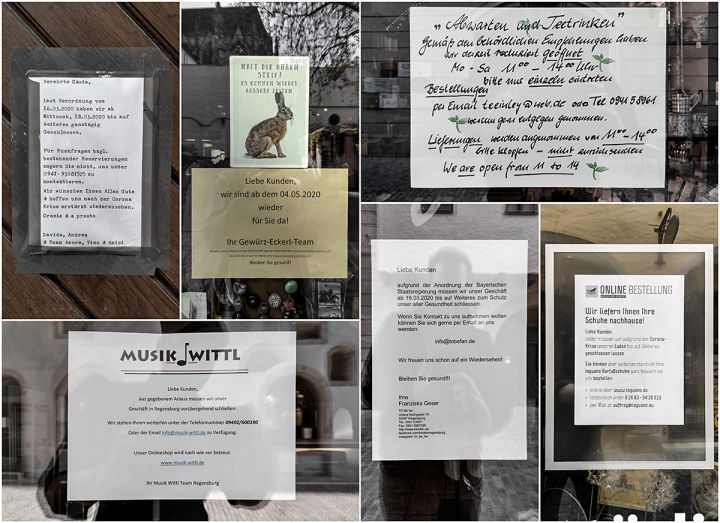 Verehrte Gäste,
laut Verordnung vom
16.03.2020 haben wir ab
Mittwoch, 18.03.2020 bis auf
Weiteres ganztägig
Geschlossen.
Für Rückfragen bzgl.
bestehender Reservierungen
zögern Sie nicht, uns unter
0941-93081505 zu
kontaktieren.
Wir wünschen Ihnen Alles Gute
& hoffen uns nach der Corona
Krise erstärkt wiederzusehen.
Grazie & a presto
Davide, Andrea
& Team Amore, Vino & Amici
HALT DIE OHREN
STEIF!
ES KOMMEN WIEDER
BESSERE ZEITEN
Liebe Kunden,
wir sind ab dem 04.05.2020
wieder
für Sie da!
Ihr Gewürz-Eckerl-Team
Bleiben Sie gesund!
„Abwarten und Teetrinken"
Gemäß den behördlichen Empfehlungen haben
wir derzeit reduziert geöffnet
Mo - Sa 11 00 - 14 00 Uhr
bitte nur einzeln eintreten
Bestellungen
per Email teeinley@web.de oder Tel 0941 58961
werden gern entgegen genommen.
Lieferungen werden angenommen von 11 00 - 14 00
bitte klopfen - nicht zurücksenden
We are open from 11 to 14
MUSIK WITTL
Liebe Kunden,
aus gegebenem Anlass müssen wir unser
Geschäft in Regensburg vorübergehend schließen.
Wir stehen Ihnen weiterhin unter der Telefonnummer 09492/600190
Oder der Email info@musik-wittl.de zu Verfügung.
Unser Onlineshop wird nach wie vor betreut.
www.musik-wittl.de
Ihr Musik Wittl Team Regensburg
Liebe Kunden
aufgrund der Anordnung der Bayerischen
Staatsregierung müssen wir unser Geschäft
ab 18.03.2020 bis auf Weiteres zum Schutz
unser aller Gesundheit schliessen.
Wenn Sie Kontakt zu uns aufnehmen wollen
können Sie sich gerne per Email an uns
wenden:
info@tobefan.de
Wir freuen uns schon auf ein Wiedersehen!
Bleiben Sie gesund!!!
Ihre
Franziska Geser
ONLINE BESTELLUNG
Wir liefern Ihnen Ihre
Schuhe nachhause!
Liebe Kunden,
leider müssen wir aufgrund der Corona-
Krise unseren Laden bis auf Weiteres
geschlossen lassen.
Sie können aber selbstverständlich Ihre
leguano Barfußschuhe ganz bequem bei
uns bestellen:
• online über www.leguano.eu
• telefonisch unter 0 26 83 - 9430 515
• per Mail an auftrag@leguano.eu